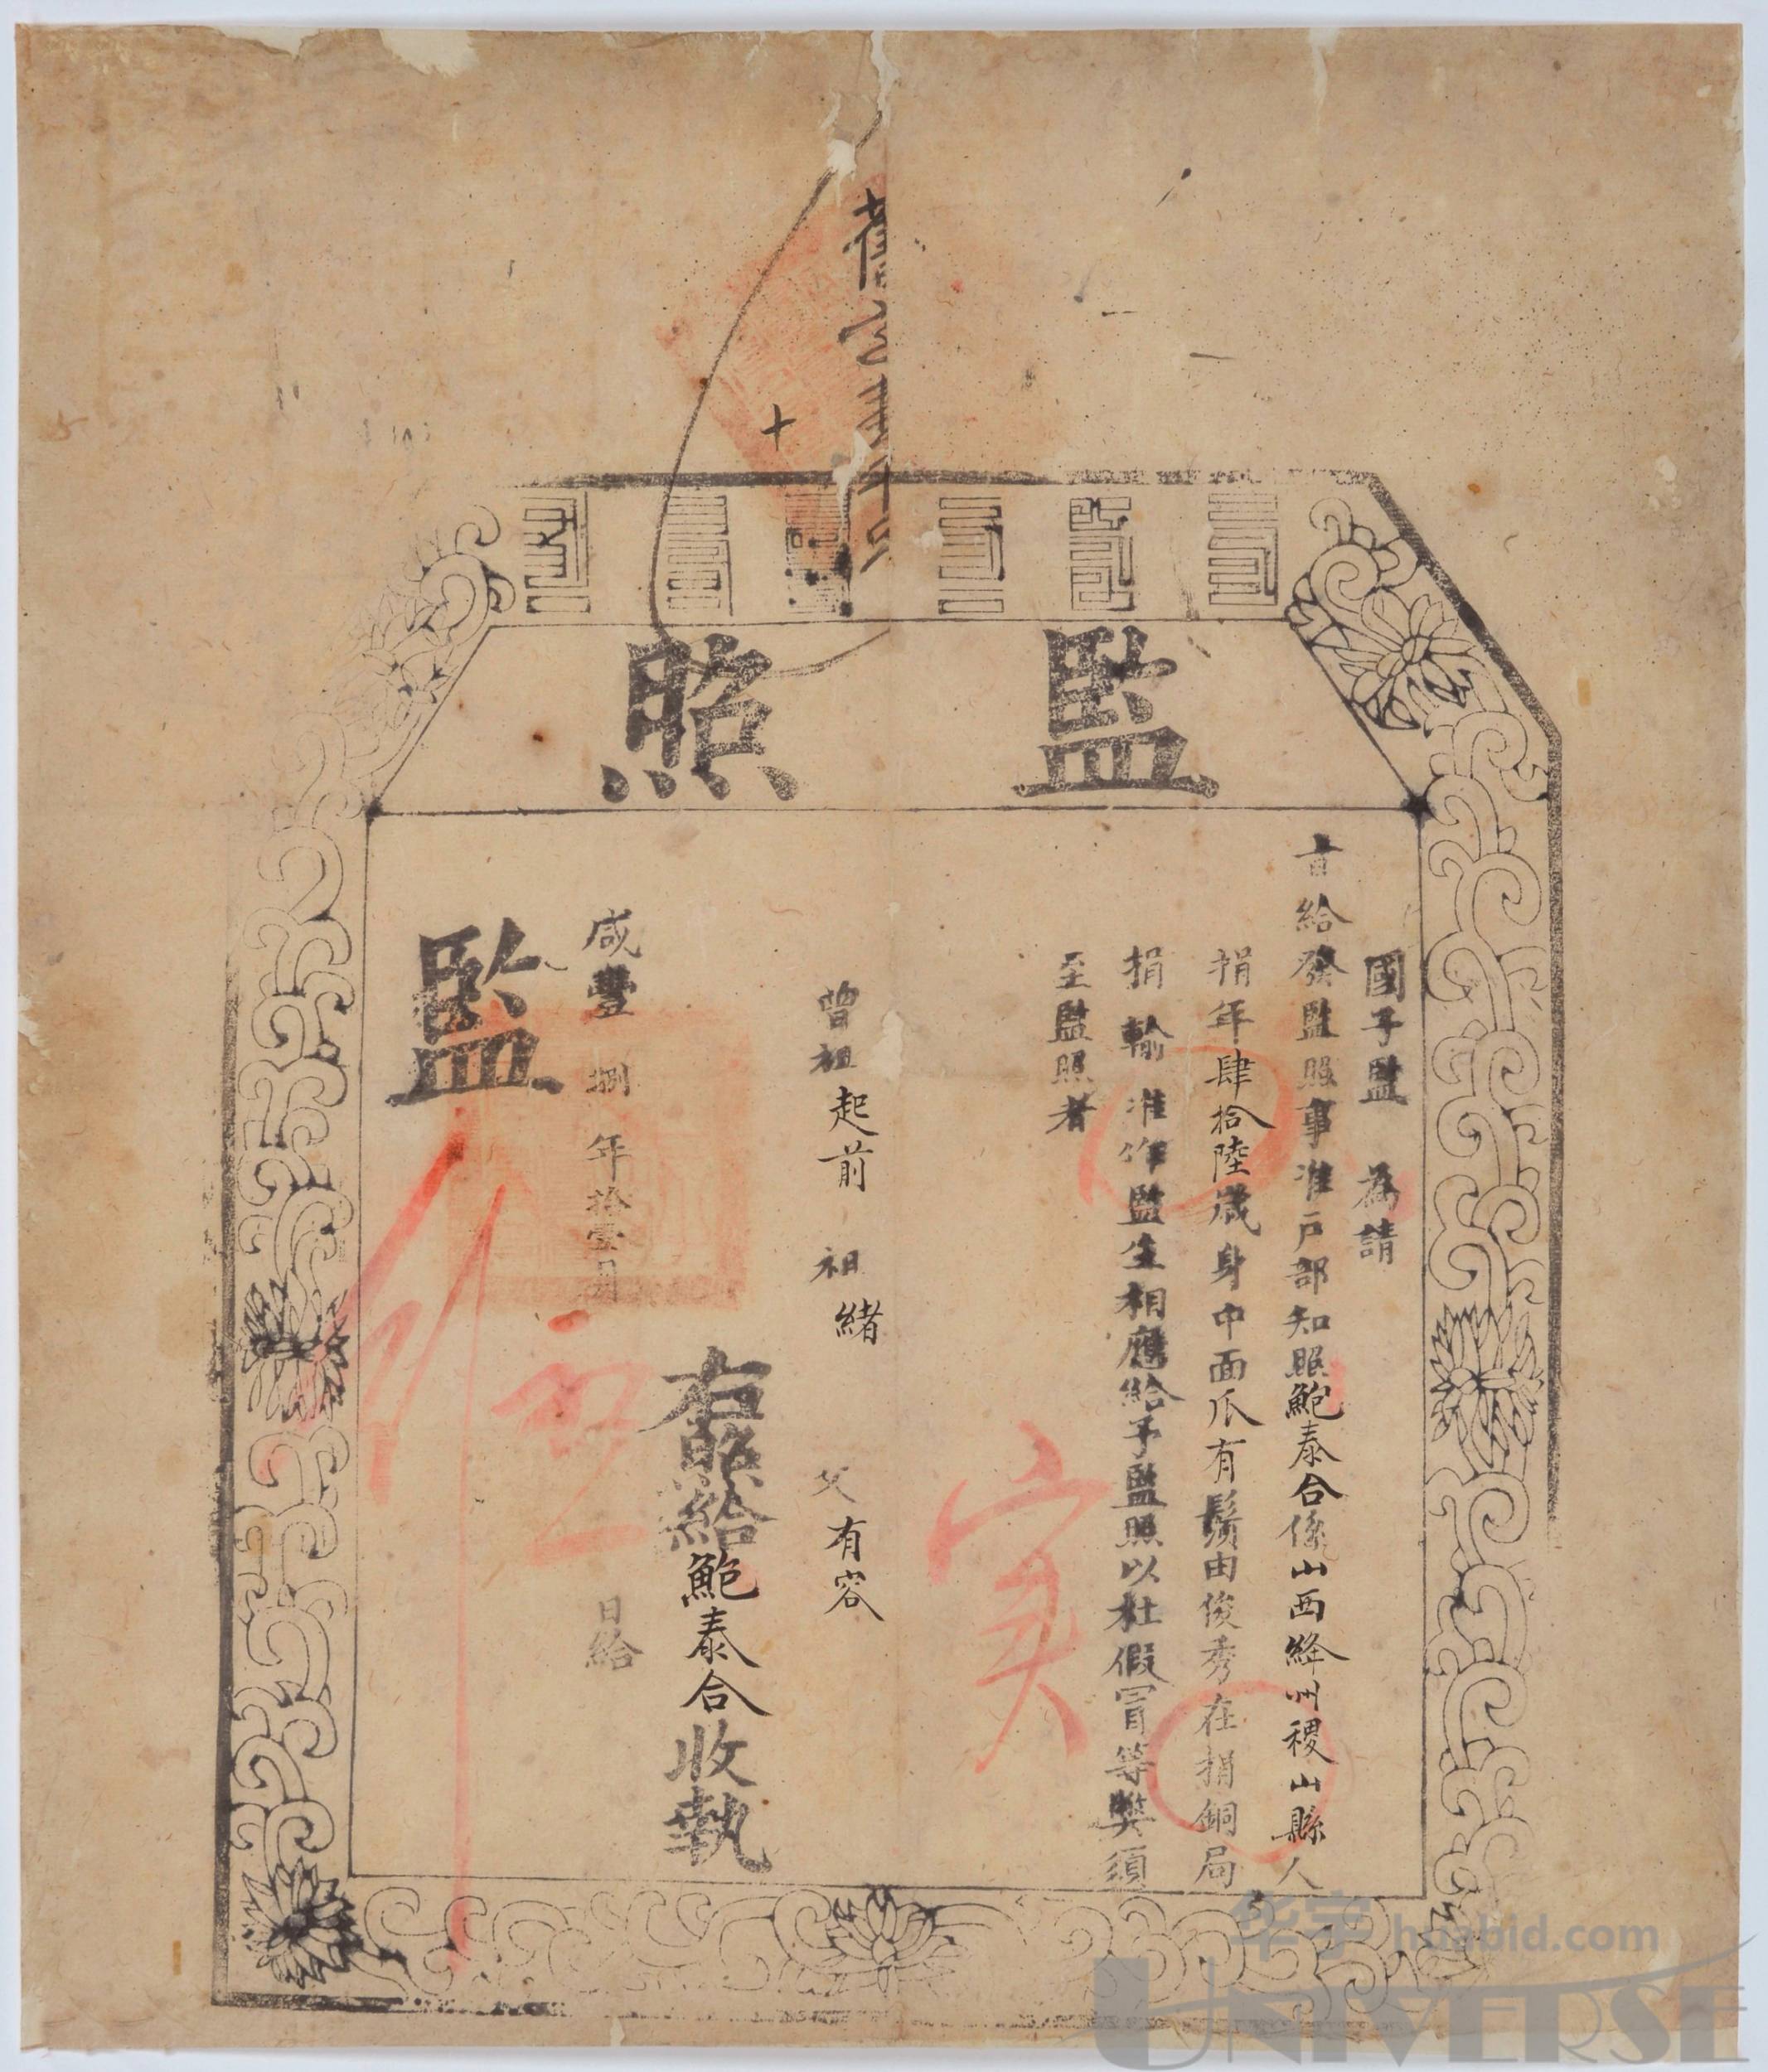 監照
國子監 為請
旨給發監照事准户部知照鮑泰合係山西絳州稷山縣人
捐年肆拾陸歲身中面爪有鬚由俊秀在捐銅局
捐輸准作監生相應給予監照以杜假冒等獘須
至監照者
曾祖起前 祖緒 父有容
右照給鮑泰合收執
咸豐捌年拾壹月 日給
監
实
十
华宇 huabid.com
UNIVERSE